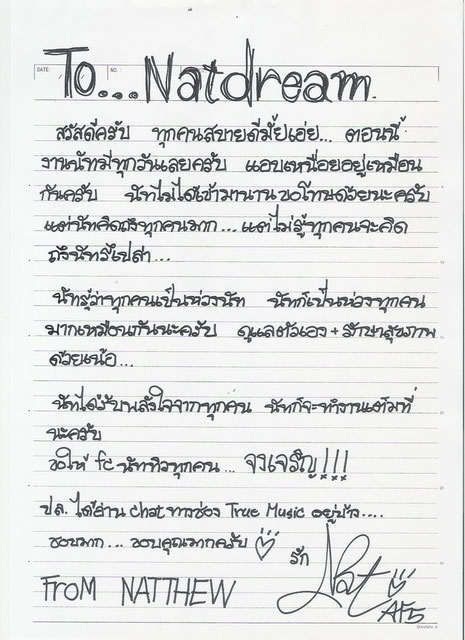 DATE:
NO.:
To... Natdream.
สวัสดีครับ ทุกคนสบายดีมั้ยเอ่ย... ตอนนี้
งานนัทมีทุกวันเลยครับ แอบเหนื่อยอยู่เหมือน
กันครับ นัทไม่ได้เข้ามานาน ขอโทษด้วยนะครับ
แต่นัทคิดถึงทุกคนมาก... แต่ไม่รู้ทุกคนจะคิด
ถึงนัทรึเปล่า...
นัทรู้ว่าทุกคนเป็นห่วงนัท นัทก็เป็นห่วงทุกคน
มากเหมือนกันนะครับ ดูแลตัวเอง + รักษาสุขภาพ
ด้วยเน้อ...
นัทได้รับพลังใจจากทุกคน นัทก็จะทำงานเต็มที่
นะครับ
ขอให้ fc นัททิวทุกคน... จงเจริญ!!!
ปล. ได้อ่าน chat ทางช่อง True Music อยู่บ้าง....
ชอบมาก... ขอบคุณมากครับ
รัก Nat
FROM NATTHEW
AF5